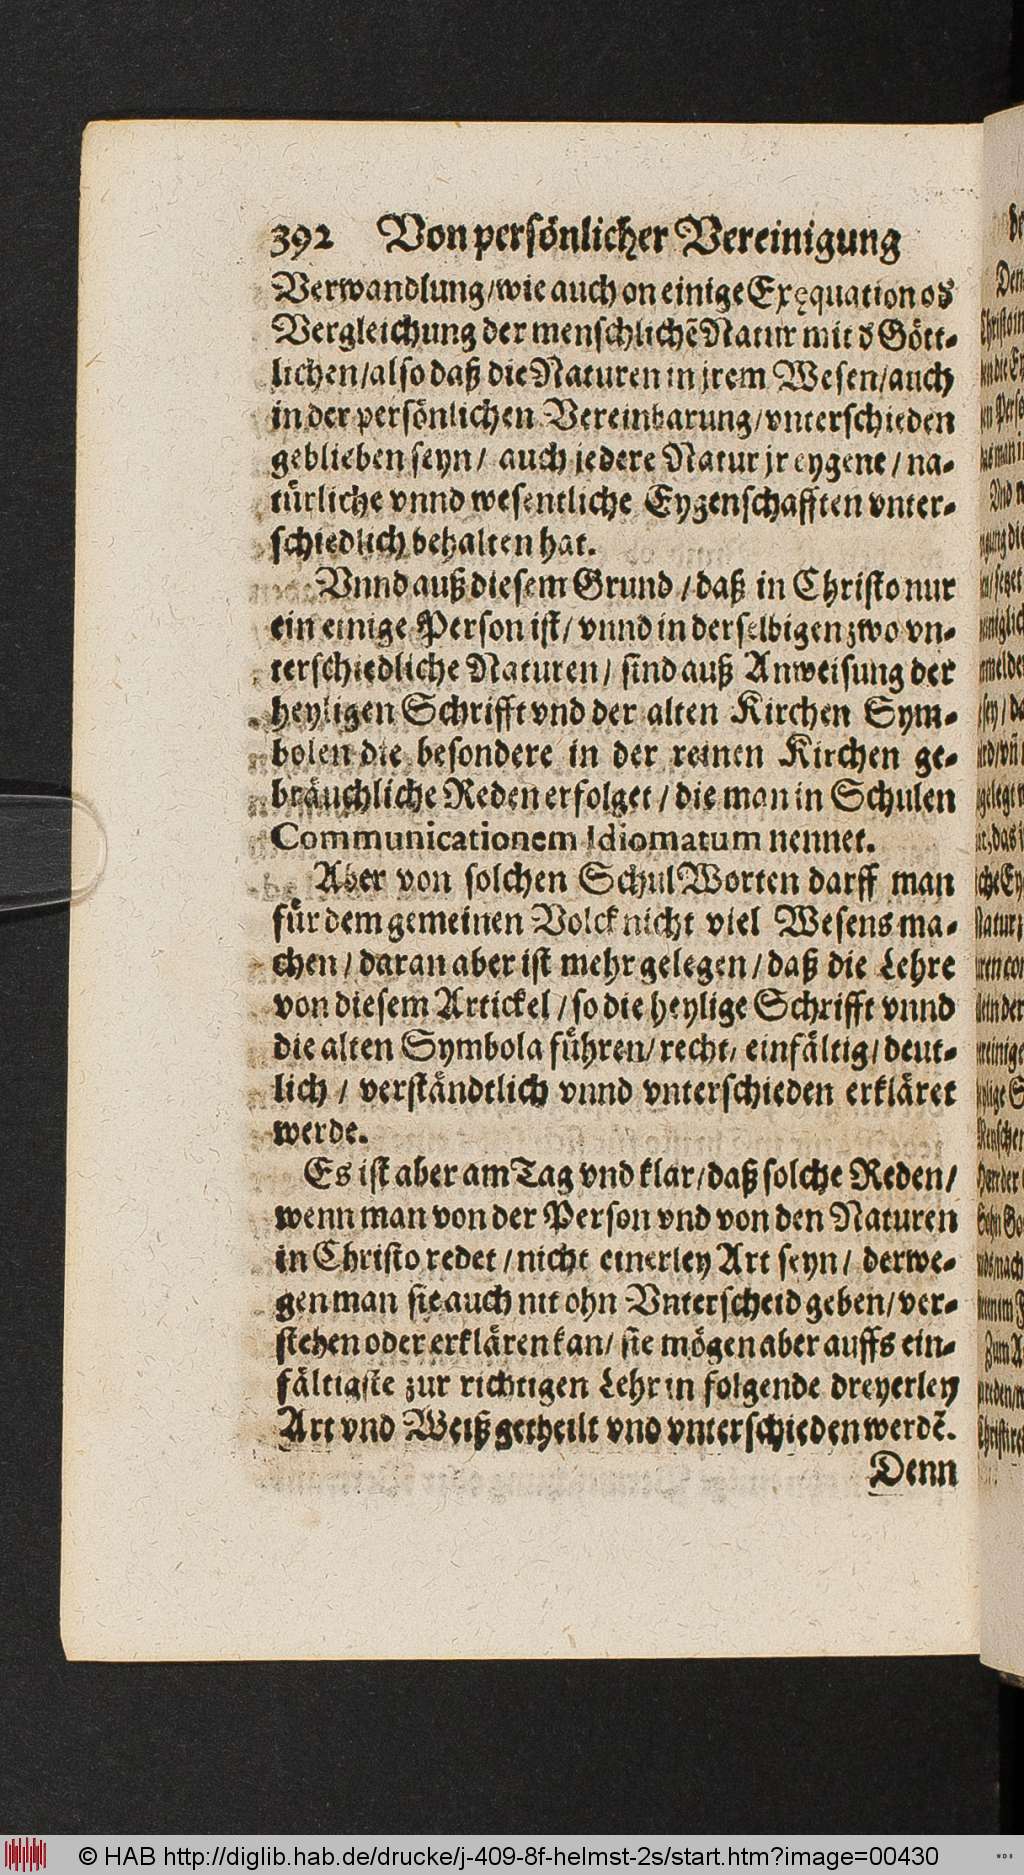 392 Von persönlicher Vereinigung
Verwandlung/wie auch on einige Exęquation od
Vergleichung der menschlichẽ Natur mit d Gött-
lichen/also daß die Naturen in jrem Wesen/auch
in der persönlichen Vereinbarung/vnterschieden
geblieben seyn/ auch jedere Natur jr eygene / na-
türliche vnnd wesentliche Eygenschafften vnter-
schiedlich behalten hat.
Vnnd auß diesem Grund / daß in Christo nur
ein einige Person ist/ vnnd in derselbigen zwo vn-
terschiedliche Naturen/ sind auß Anweisung der
heyligen Schrifft vnd der alten Kirchen Sym-
bolen die besondere in der reinen Kirchen ge-
bräuchliche Reden erfolget / die man in Schulen
Communicationem Idiomatum nennet.
Aber von solchen SchulWorten darff man
für dem gemeinen Volck nicht viel Wesens ma-
chen / daran aber ist mehr gelegen / daß die Lehre
von diesem Artickel / so die heylige Schrifft vnnd
die alten Symbola führen/ recht/ einfältig/ deut-
lich / verständtlich vnnd vnterschieden erkläret
werde.
Es ist aber am Tag vnd klar/daß solche Reden/
wenn man von der Person vnd von den Naturen
in Christo redet / nicht einerley Art seyn/ derwe-
gen man sie auch nit ohn Vnterscheid geben/ ver-
stehen oder erklären kan/ sie mögen aber auffs ein-
fältigste zur richtigen Lehr in folgende dreyerley
Art vnd Weiß getheilt vnd vnterschieden werdẽ.
Denn
© HAB http://diglib.hab.de/drucke/j-409-8f-helmst-2s/start.htm?image=00430